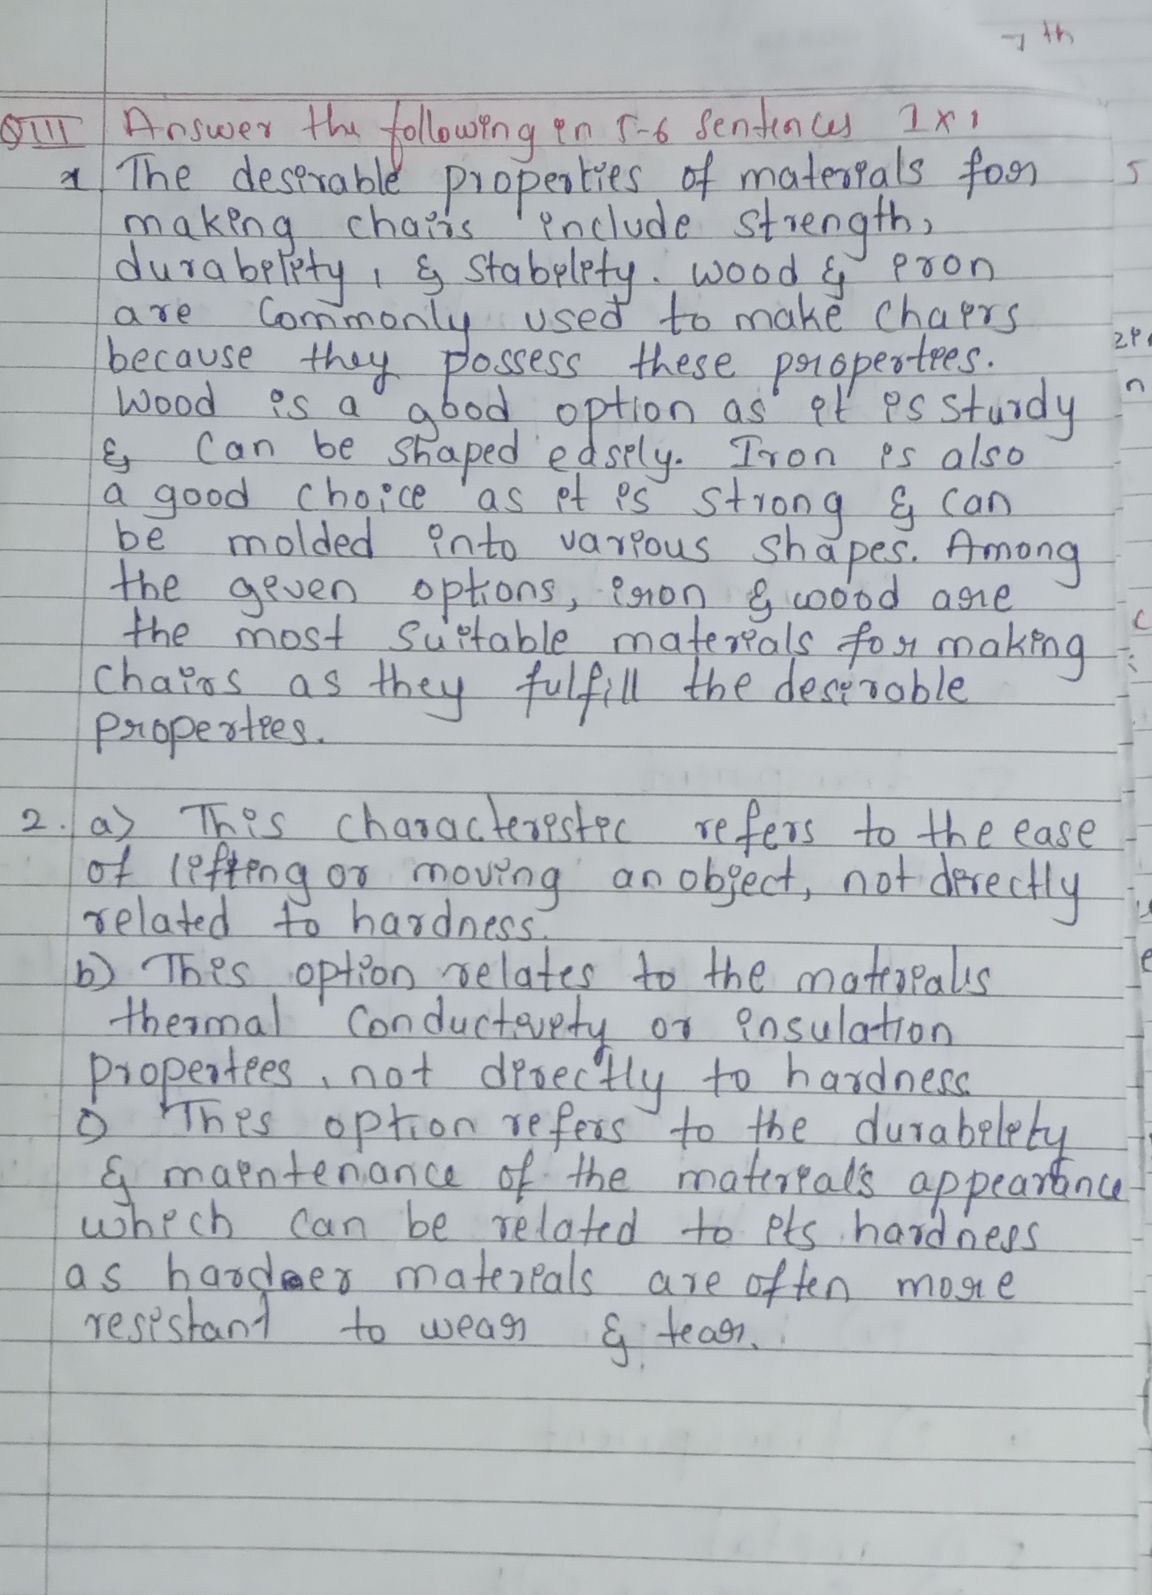 7th
QIII Answer the following in 5-6 sentences 1x1
1 The desirable properties of materials for
making chairs include strength,
durability, & stability. wood & iron
are Commonly used to make chairs
because they possess these properties.
Wood is a good option as it is sturdy
& Can be shaped easily. Iron is also
a good choice as it is strong & can
be molded into various shapes. Among
the given options, iron & wood are
the most suitable materials for making
chairs as they fulfill the desirable
properties.
2. a) This characteristic refers to the ease
of lifting or moving an object, not directly
related to hardness.
b) This option relates to the material's
thermal Conductivity or insulation
properties, not directly to hardness
c) This option refers to the durability
& maintenance of the material's appearance
which can be related to its hardness
as harder materials are often more
resistant to wear & tear.